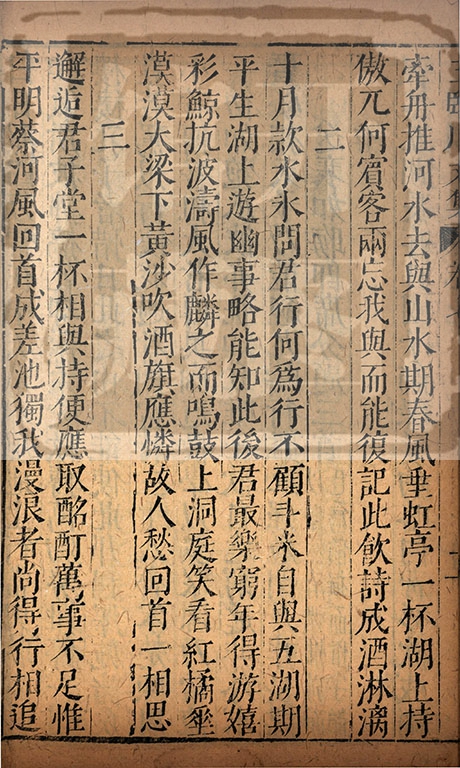 牽舟推河水去與山水期春風垂虹亭一杯湖上持
傲兀何賓客兩忘我與而能復記此飲詩成酒淋漓
二
十月款水氷問君行何爲行不顧斗米自與五湖期
平生湖上遊幽事略能知此後君最樂窮年得游嬉
彩鯨抗波濤風作麟之而鳴鼓上洞庭笑看紅橘垂
漠漠大梁下黃沙吹酒旗應憐故人愁回首一相思
三
邂逅君子堂一杯相與持便應取酩酊萬事不足惟
平明蔡河風回首成差池獨我漫浪者尚得行相追